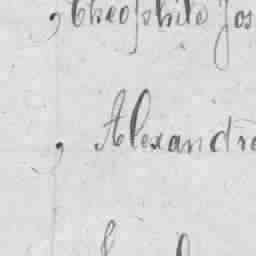 , Théophile Jos
, Alexandre